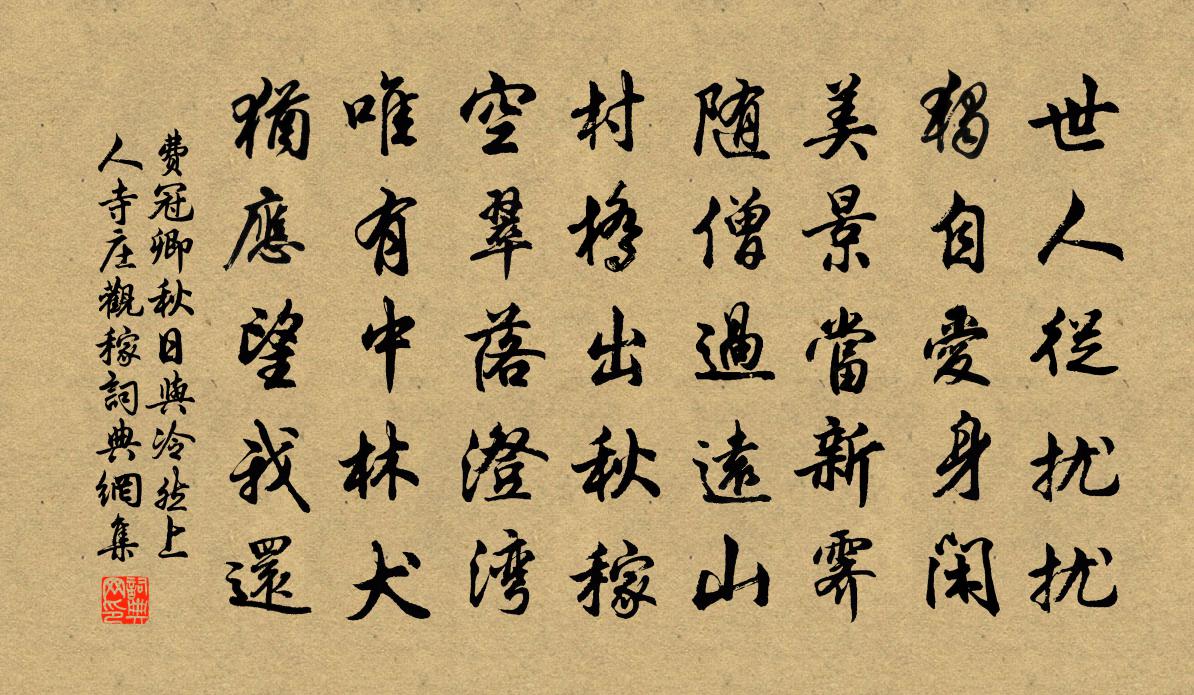 世人從扰扰
獨自愛身閑
美景當新霽
随僧過遠山
村橋出秋稼
空翠落澄湾
唯有中林犬
猶應望我還
費冠卿秋日與冷然上
人寺庄觀稼詞典網集
詞典
网印